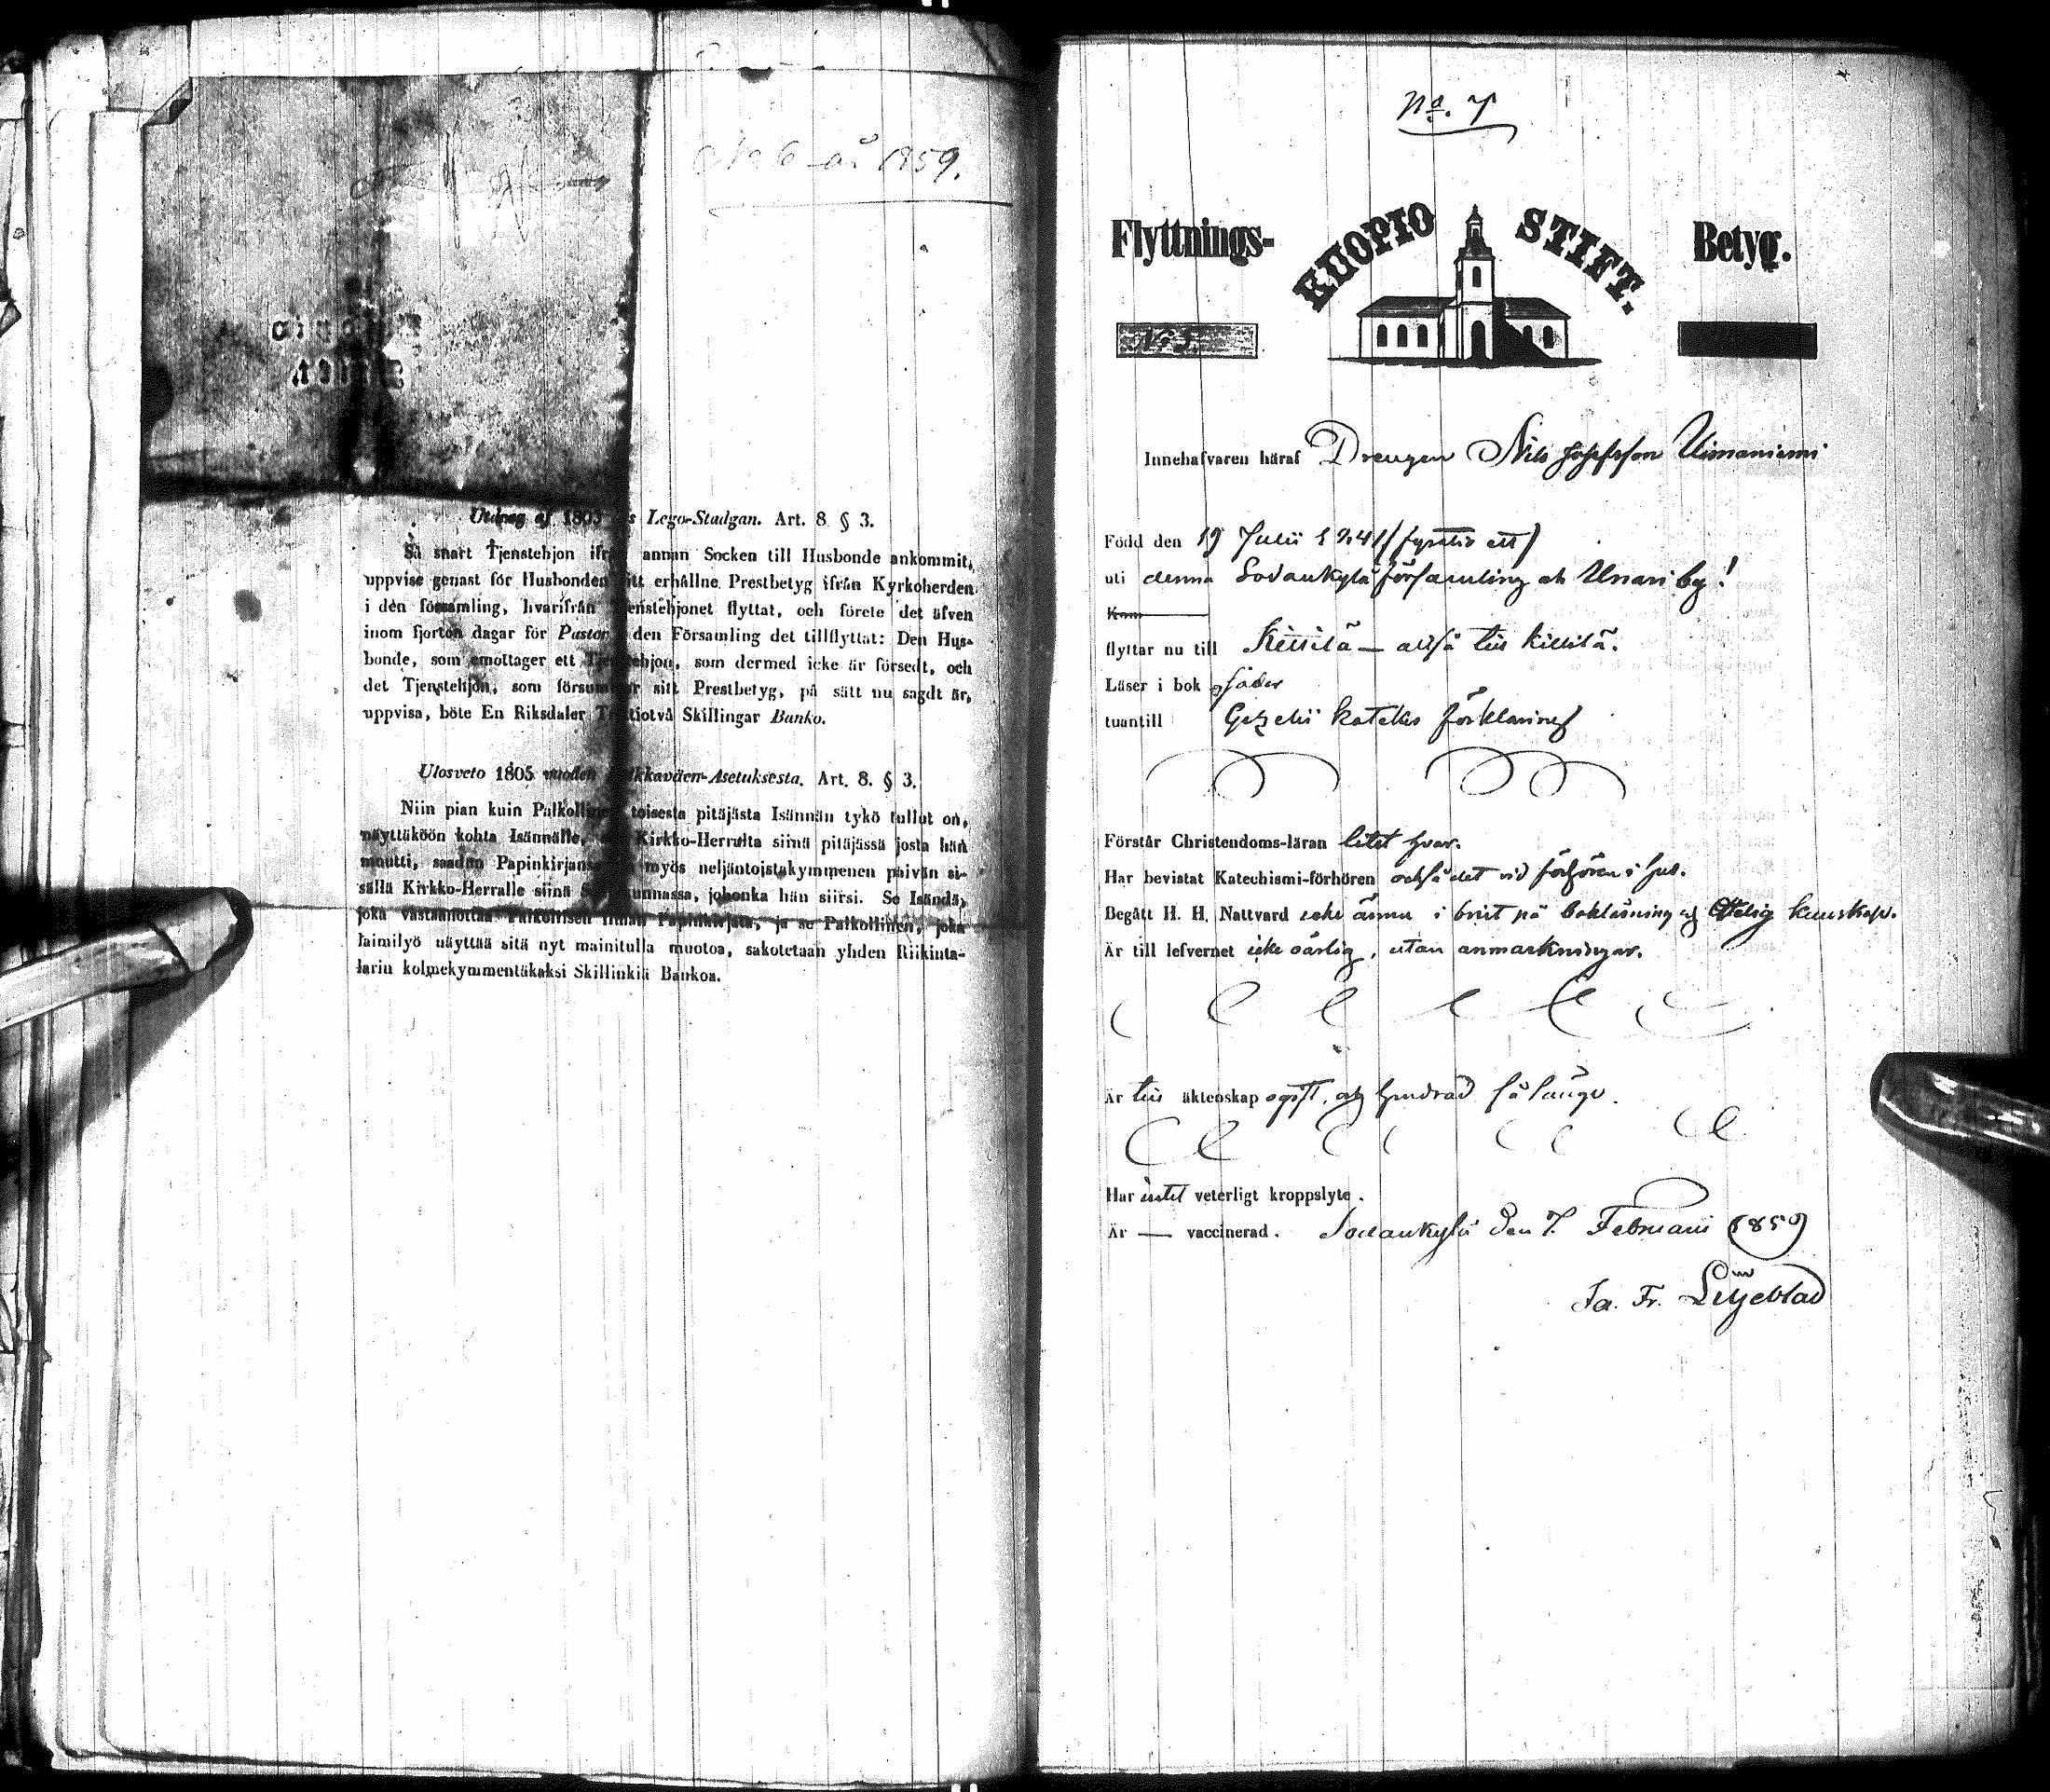 år 1859.
Utdrag af 1805 Lego-Stadgan. Art. 8 § 3.
Så snart Tjenstehjon ifrån annan Socken till Husbonde ankommit,
uppvise genast för Husbonden sitt erhållne Prestbetyg ifrån Kyrkoherden
i den församling, hvarifrån Tjenstehjonet flyttat, och förete det äfven
inom fjorton dagar för Pastor i den Församling det tillflyttat: Den Hus-
bonde, som emottager ett Tjenstehjon, som dermed icke är försedt, och
det Tjenstehjon, som försummar sitt Prestbetyg, på sätt nu sagdt är,
uppvisa, böte En Riksdaler Trettiotvå Skillingar Banko.
Ulosveto 1805 vuoden Palkkaväen-Asetuksesta. Art. 8. § 3.
Niin pian kuin Palkollinen toisesta pitäjästä Isännän tykö tullut on,
näyttäköön kohta Isännälle, Kirkko-Herralta siinä pitäjässä josta hän
muutti, saadun Papinkirjansa myös neljäntoistakymmenen päivän si-
sällä Kirkko-Herralle siinä Seurakunnassa, johonka hän siirsi. Se Isändä,
joka vastaanottaa Palkollisen ilman Papinkirjata, ja se Palkollinen, joka
laimilyö näyttää sitä nyt mainitulla muotoa, sakotetaan yhden Riikinta-
larin kolmekymmentäkaksi Skillinkiä Bankoa.
No. 7
Flyttnings- KUOPIO STIFT. Betyg.
No 5
Innehafvaren häraf Drengen Nils Josefsson Uimaniemi
Född den 19 Julii 1841 (fyratio ett)
uti denna Sodankylä församling och Unari by!
Kom
flyttar nu till Kittilä — altså till Kittilä.
Läser i bok
utantill Gezelii kateches förklaring
Förstår Christendoms-läran litet hvar.
Har bevistat Katechismi-förhören också det vid förhören i
Begått H. H. Nattvard icke ännu i brist på bokläsning och kunskap.
Är till lefvernet icke oärlig, utan anmärkningar.
Är till äktenskap ogift, och hindrad så länge.
Har intet veterligt kroppslyte.
Är — vaccinerad. Sodankylä den 7. Februarii 1859
Ja. Fr. Liljeblad